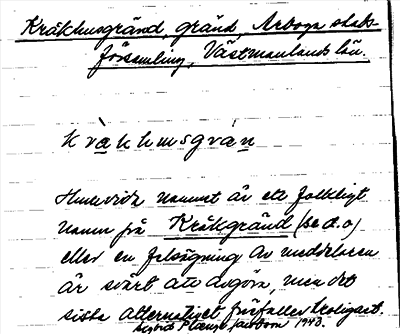 Kråkhusgränd, gränd, Arboga stads-
församling, Västmanlands län.
kràkhusgrán
Huruvida namnet är ett folkligt
namn på Kråkgränd (se d.o)
eller en felsägning av meddelaren
är svårt att avgöra, men det
sista alternativet förfaller troligast.
1943.